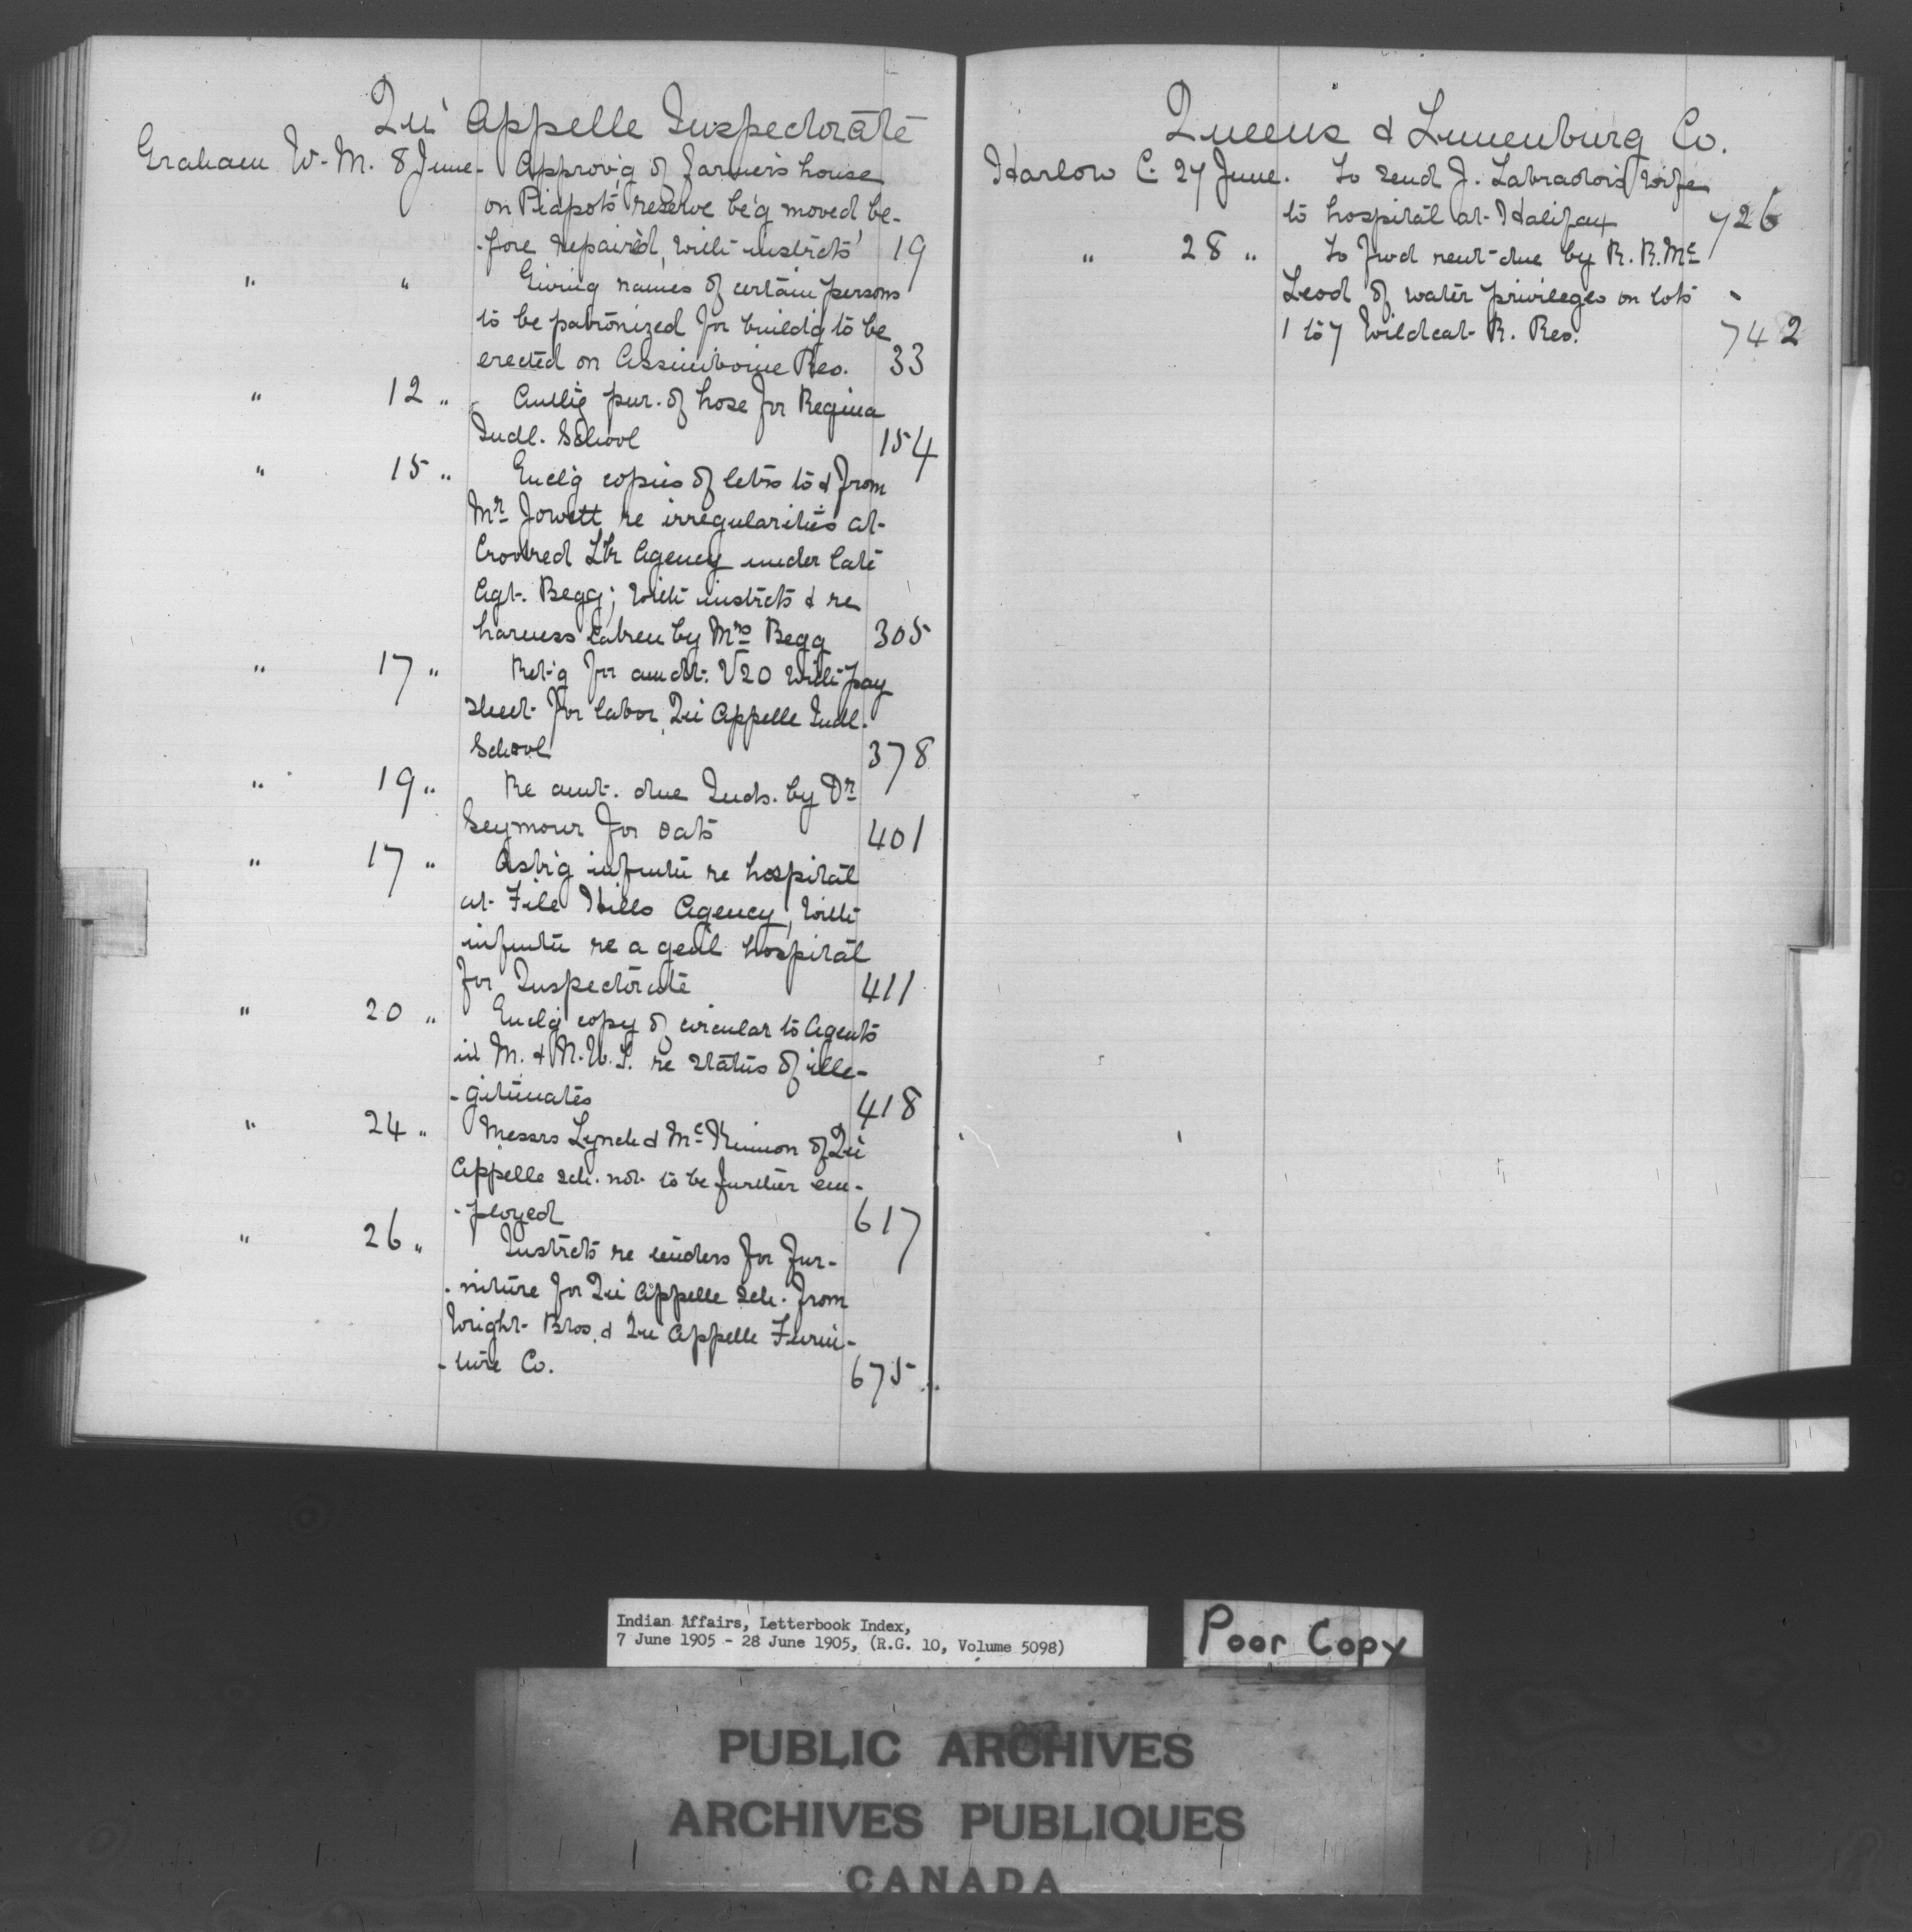 Qu'Appelle Inspectorate
Graham W. M. 8 June. Approv'g of farmer's house
on Piapot's reserve be'g moved be-
-fore repaired, with instrcts' 19
" " Giving names of certain persons
to be patronized for build'g to be
erected on Assiniboine Res. 33
" 12 " Auth'g pur. of hose for Regina
Indl. School 154
" 15 " Encl'g copies of letrs to & from
Mr. Jowett re irregularities at
Crooked Lk Agency under late
Agt. Begg; with instrcts & re
harness taken by Mrs Begg 305
" 17 " Ret'g for amdt. V20 with pay
sheet for labor, Qu'Appelle Indl.
School 378
" 19 " Re amt. due Inds. by Dr.
Seymour for oats 401
" 17 " Ask'g infmtn re hospital
at File Hills Agency, with
infmtn re a genl hospital
for Inspectorate 411
" 20 " Encl'g copy of circular to Agents
in M. & N.W.T. re status of ille-
-gitimates 418
" 24 " Messrs Lynch & McKinnon of Qu'
Appelle sch. not to be further em-
-ployed 617
" 26 " Instrcts re tenders for fur-
-niture for Qu'Appelle sch. from
Wright Bros. & Qu'Appelle Furni-
-ture Co. 675
Queens & Lunenburg Co.
Harlow C. 27 June. To send J. Labrador's wife
to hospital at Halifax 726
" 28 " To fwd rent due by R. R. Mc
Leod of water privileges on lots
1 to 7 Wildcat R. Res. 742
Indian Affairs, Letterbook Index,
7 June 1905 - 28 June 1905, (R.G. 10, Volume 5098)
Poor Copy
PUBLIC ARCHIVES
ARCHIVES PUBLIQUES
CANADA